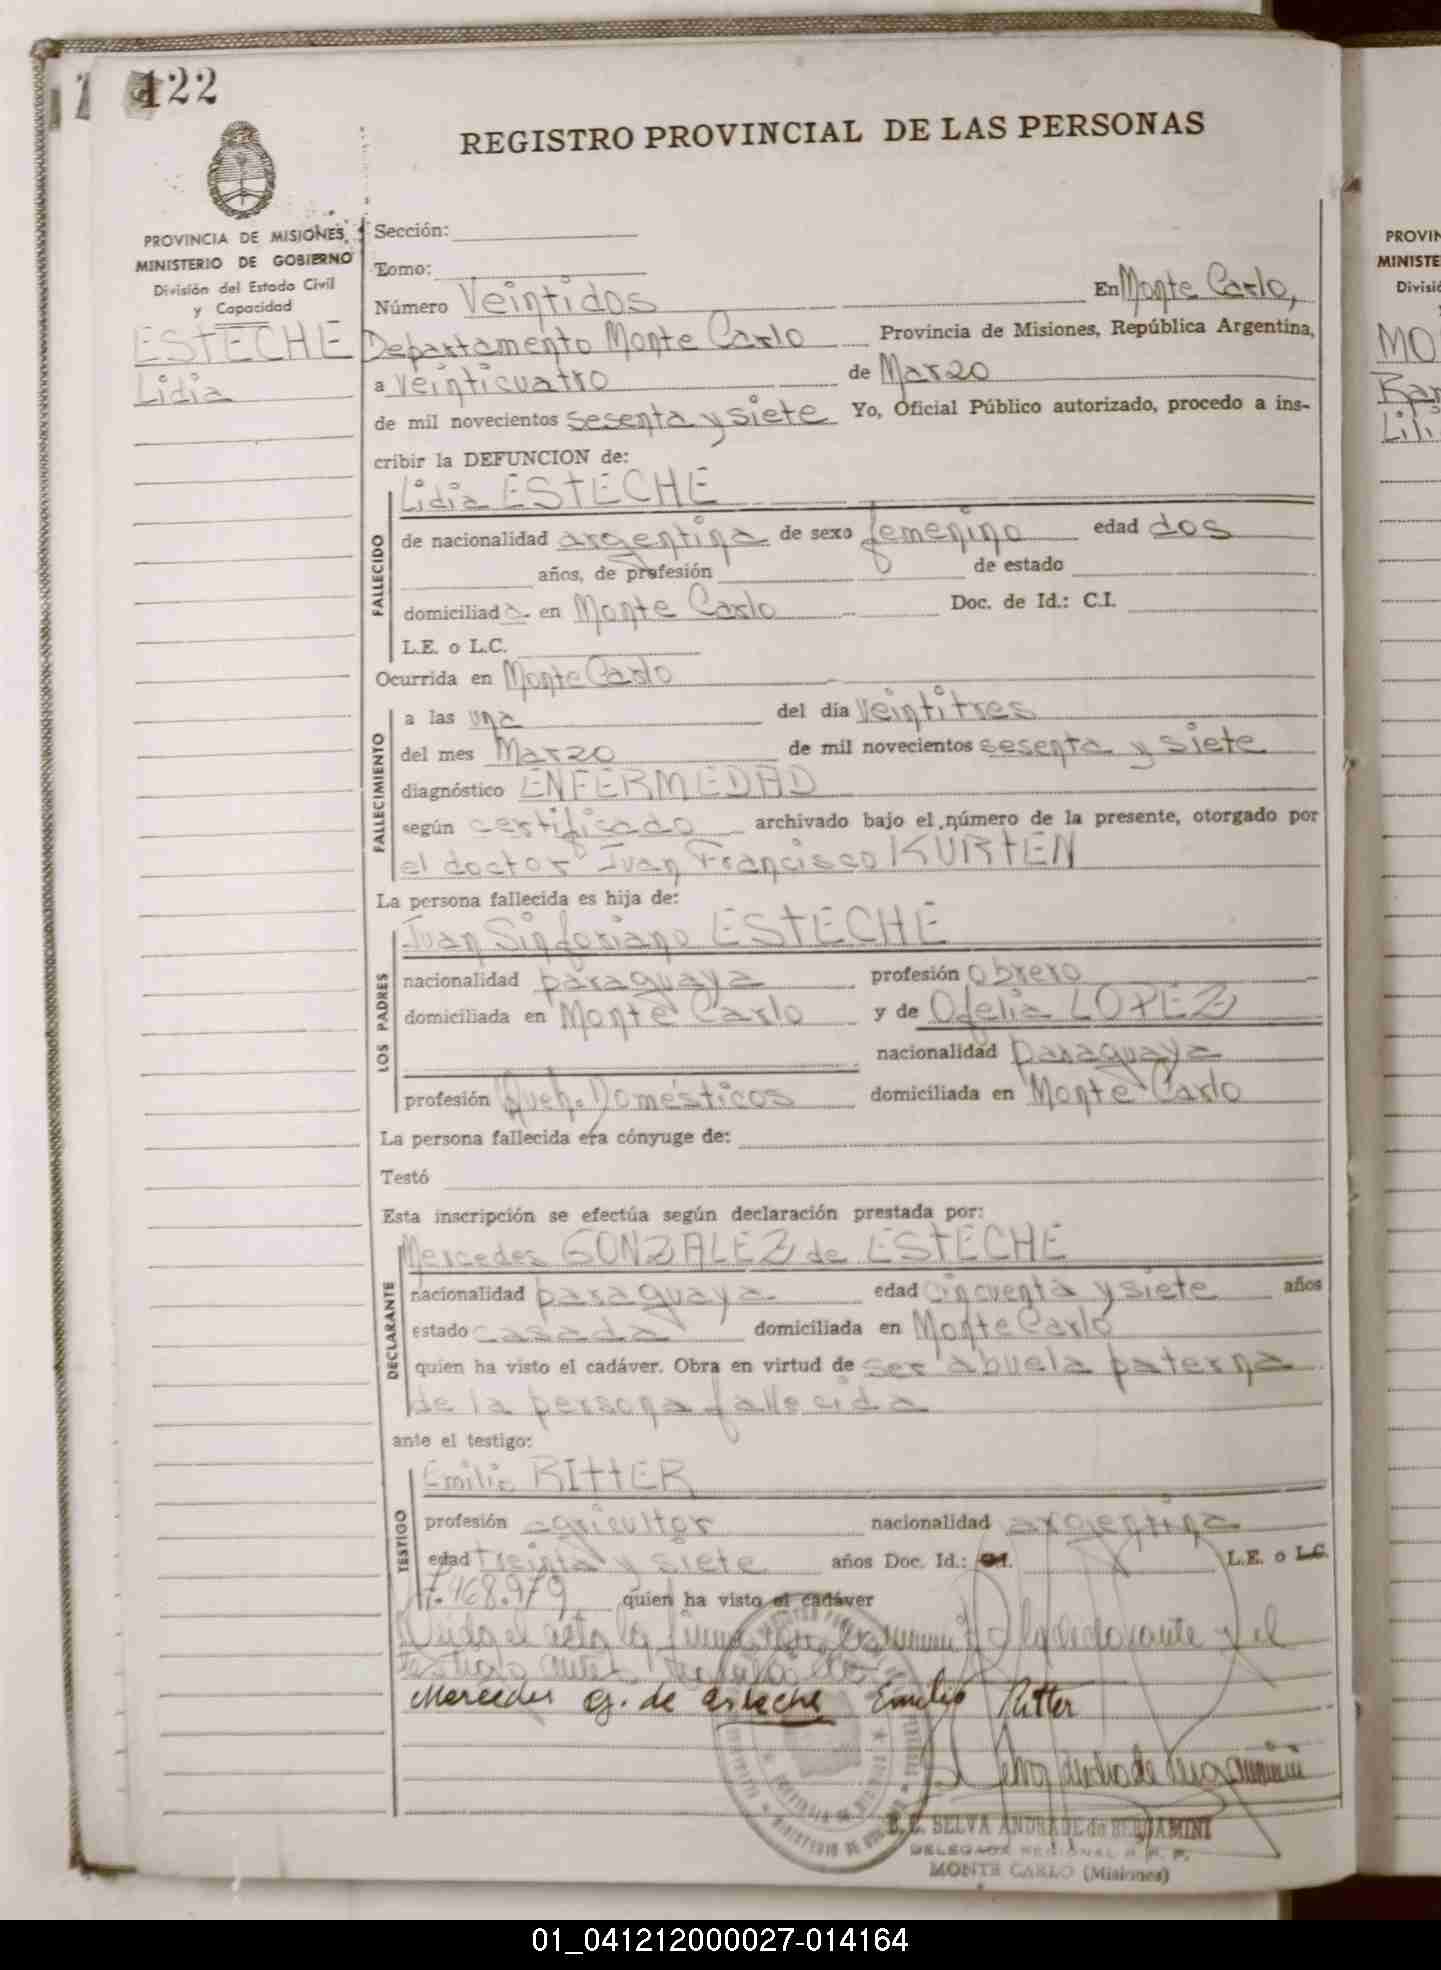 122
REGISTRO PROVINCIAL DE LAS PERSONAS
PROVINCIA DE MISIONES
MINISTERIO DE GOBIERNO
División del Estado Civil
y Capacidad
ESTECHE
Lidia
Sección:
Tomo:
Número Veintidos En Monte Carlo,
Departamento Monte Carlo Provincia de Misiones, República Argentina,
a veinticuatro de Marzo
de mil novecientos sesenta y siete Yo, Oficial Público autorizado, procedo a ins-
cribir la DEFUNCION de:
Lidia ESTECHE
FALLECIDO
de nacionalidad argentina de sexo femenino edad dos
años, de profesión de estado
domiciliada en Monte Carlo Doc. de Id.: C.I.
L.E. o L.C.
Ocurrida en Monte Carlo
FALLECIMIENTO
a las una del día veintitres
del mes Marzo de mil novecientos sesenta y siete
diagnóstico ENFERMEDAD
según certificado archivado bajo el número de la presente, otorgado por
el doctor Juan Francisco KURTEN
La persona fallecida es hija de:
Juan Sinforiano ESTECHE
LOS PADRES
nacionalidad paraguaya profesión obrero
domiciliada en Monte Carlo y de Ofelia LOPEZ
nacionalidad paraguaya
profesión Queh. Domésticos domiciliada en Monte Carlo
La persona fallecida era cónyuge de:
Testó
Esta inscripción se efectúa según declaración prestada por:
Mercedes GONZALEZ de ESTECHE
DECLARANTE
nacionalidad paraguaya. edad cincuenta y siete años
estado casada domiciliada en Monte Carlo
quien ha visto el cadáver. Obra en virtud de ser abuela paterna
de la persona fallecida
ante el testigo:
Emilio RITTER
TESTIGO
profesión agricultor nacionalidad argentina
edad treinta y siete años Doc. Id.: C.I. L.E. o L.C.
7.468.979 quien ha visto el cadáver
Leida el acta la declarante y el
testigo
Mercedes G. de Esteche Emilio Ritter
SELVA ANDRADE de BENJAMINI
DELEGADA REGIONAL R. P. P.
MONTE CARLO (Misiones)
PROVIN
MINISTE
Divisió
MO
Ra
Lili
01_041212000027-014164